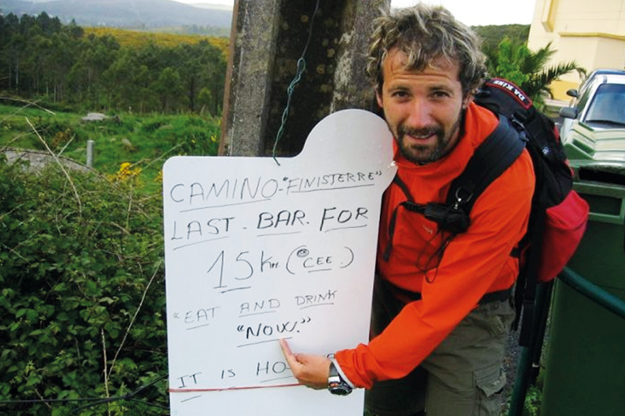 CAMINO-"FINISTERRE"
LAST. BAR. FOR
15 Km. (@CEE.)
"EAT AND DRINK
"NOW."
IT IS